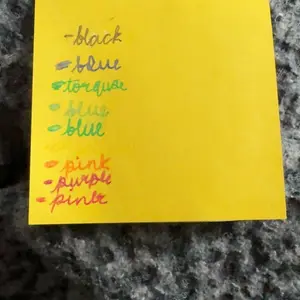 -black
-blue
-torquoise
-blue
-blue
-pink
-purple
-pink